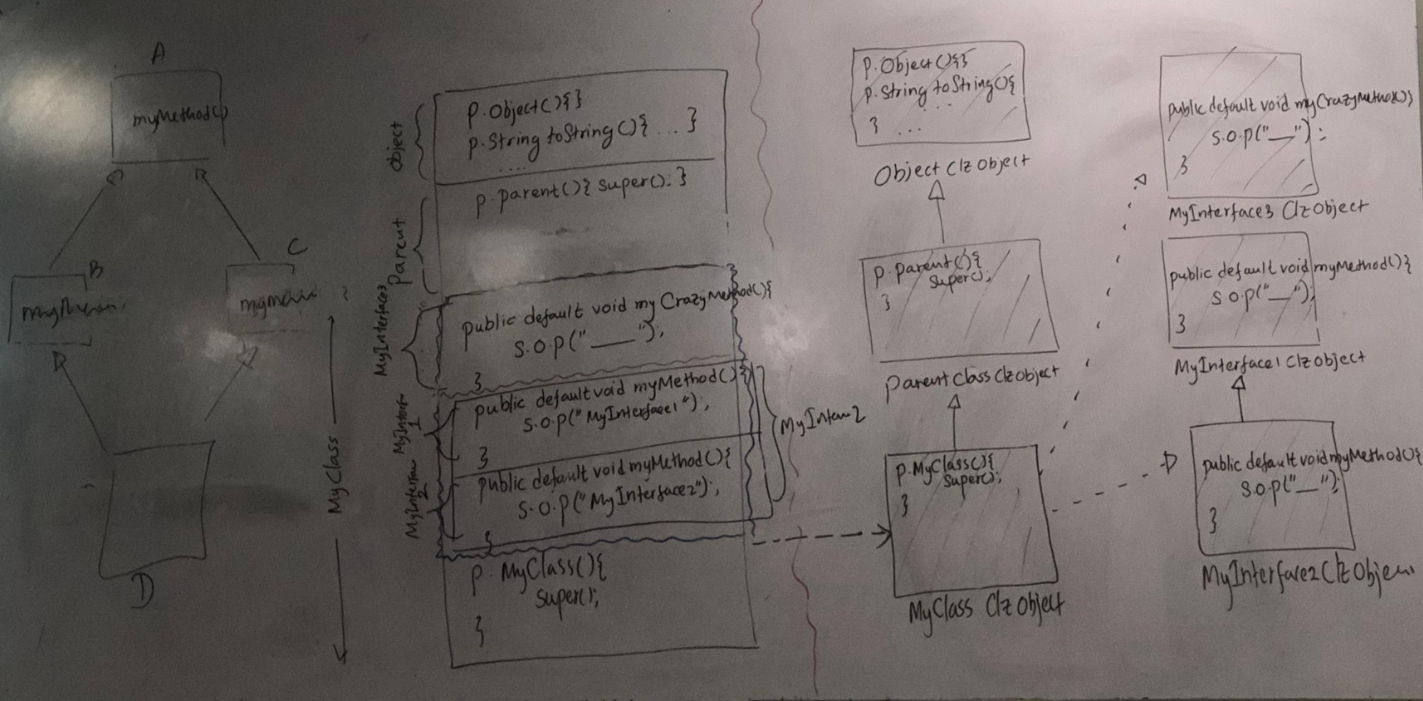 A
myMethod()
B
C
D
Object
p. Object(){}
p. String toString(){ ... }
....
Parent
p. parent(){ super(); }
MyInterface3
public default void myCrazyMethod(){
s.o.p("___");
}
MyInterf
1
public default void myMethod(){
s.o.p("MyInterface1");
}
MyInterfac
2
public default void myMethod(){
s.o.p("MyInterface2");
}
MyIntern2
MyClass
p. MyClass(){
super();
}
p. Object(){}
p. String toString(){
...
} ...
Object Clz Object
p. parent(){
super();
}
Parent Class Clz Object
p. MyClass(){
super();
}
MyClass Clz Object
public default void myCrazyMethod()
s.o.p("__");
}
MyInterface3 Clz Object
public default void myMethod(){
s.o.p("__");
}
MyInterface1 Clz Object
public default void myMethod(){
s.o.p("__");
}
MyInterface2 Clz Objec